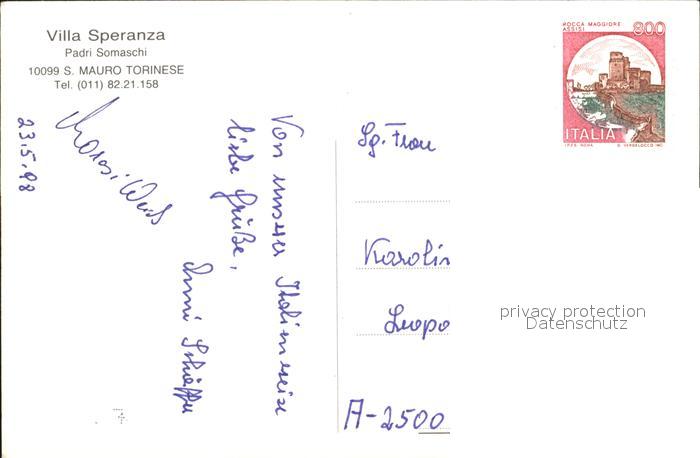 Villa Speranza
Padri Somaschi
10099 S. MAURO TORINESE
Tel. (011) 82.21.158
23.5.98
Von unserer Italienreise
liebe Grüße,
ROCCA MAGGIORE
ASSISI
800
ITALIA
I.P.Z.S. ROMA
Sg. Frau
Karolin
Leopo
A-2500
privacy protection
Datenschutz